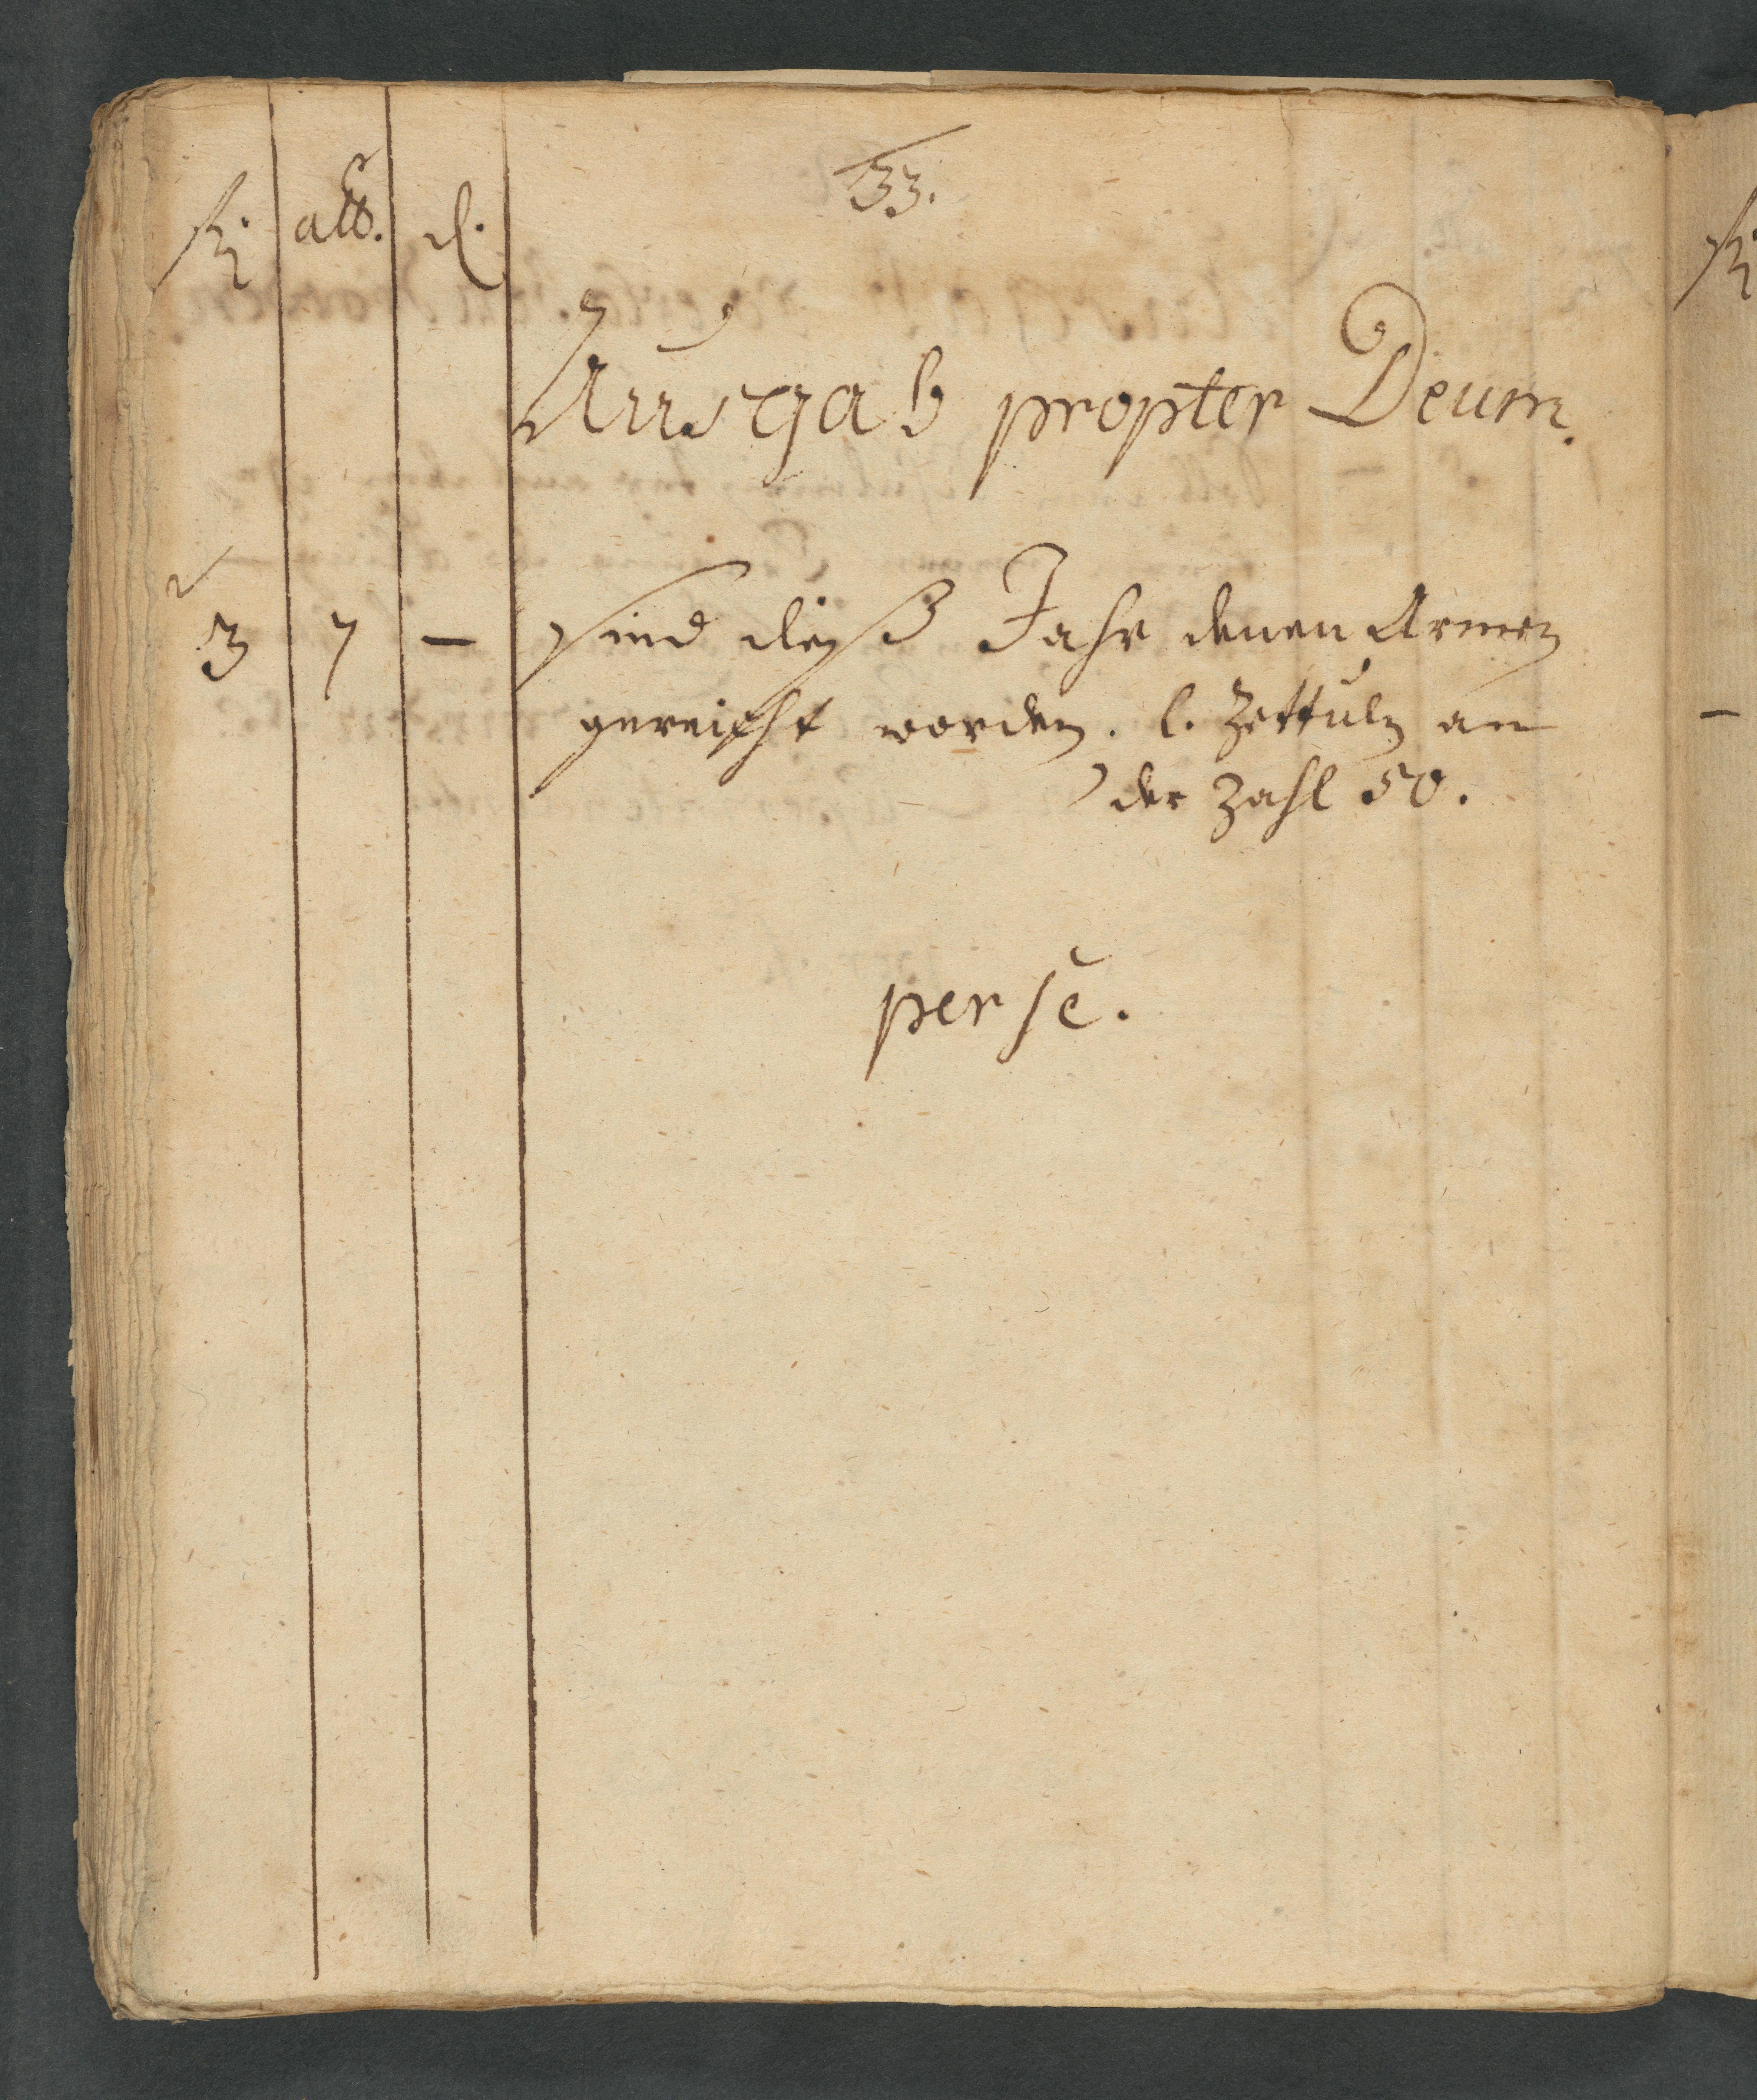 33.
fl. alb. d.
Ausgab propter Deum.
3 7 — sind dieß Jahr denen Armen
gereicht worden. l. Zettuln an
der Zahl 50.
per se.